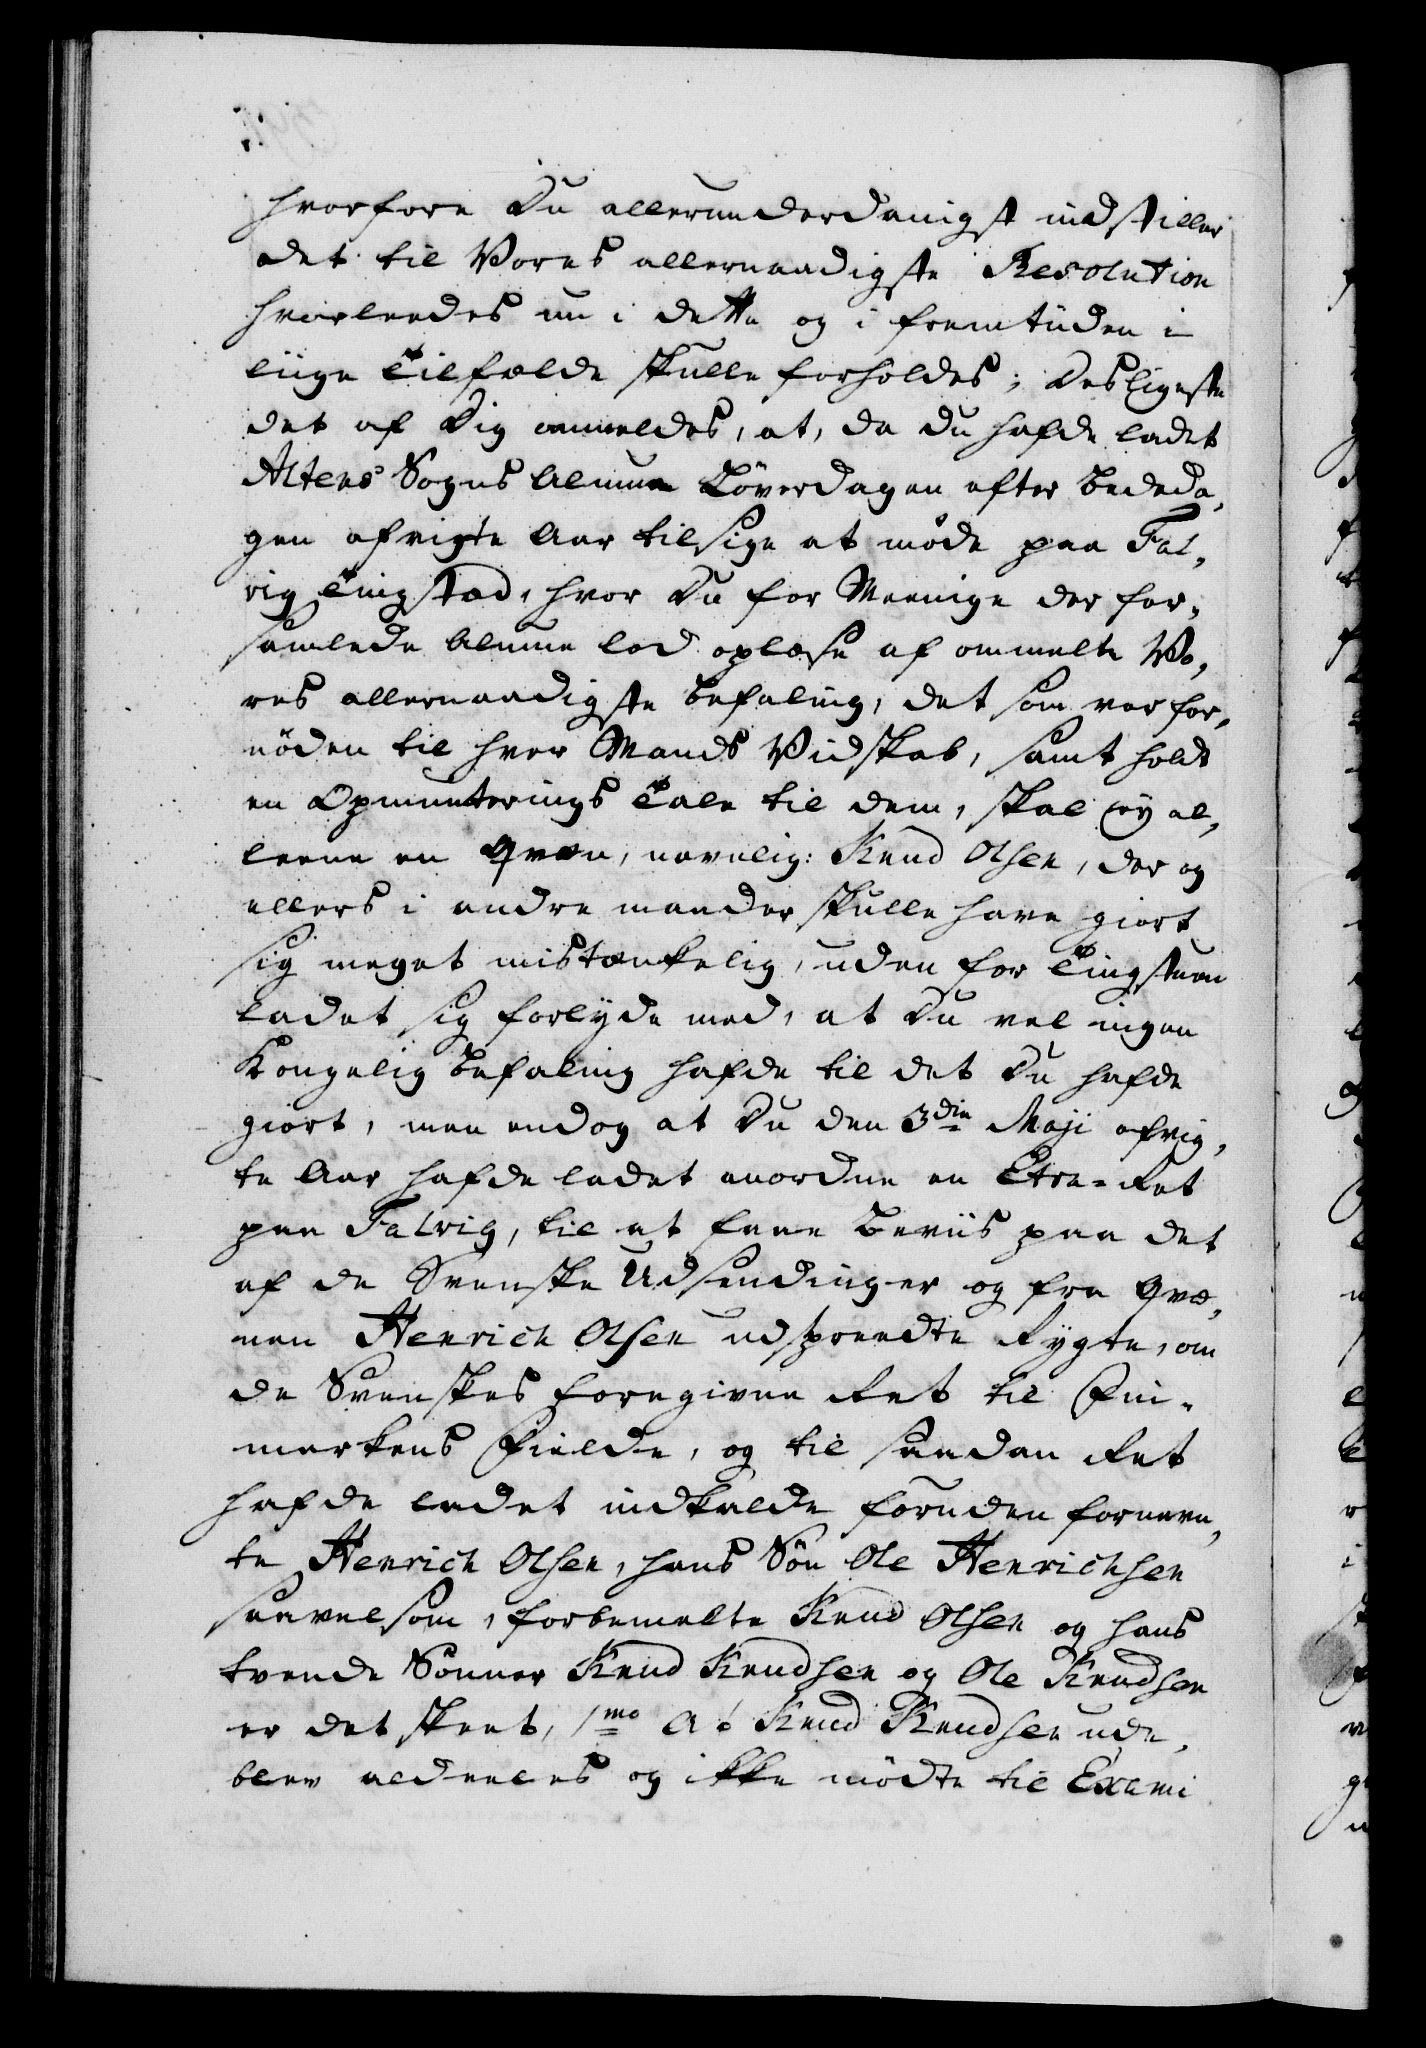 hvorfore Du allerunderdanigst indstiller
det til Vores allernaadigste Resolution
hvorleedes nu i dette og i fremtiiden i
liige Tilfælde skulle forholdes; Desligeste
det af Dig anmeldes, at, da du hafde ladet
Altens Sogns Almue Löverdagen efter Bededa,
gen afvigte Aar tilsige at möde paa Tal,
vig Tingstæd, hvor Du for Meenige der for,
samlede Almue lod oplæse af ommelte Vo,
res allernaadigste Befaling, det som var for,
nöden til hver Mands Vidskab, samt holdt
en Opmuntrings Tale til dem, skal ey al,
leene en Qvæn, navnlig: Knud Olsen, der og
ellers i andre maader skulle have giort
sig meget mistænkelig, uden for Tingstuen
ladet sig forlyde med, at Du vel ingen
Kongelig Befaling hafde til det Du hafde
giort, men endog at Du den 3die Maji afvig,
te Aar hafde ladet anordne en Etra-Ret
paa Talvig, til at faae Beviis paa det
af de Svenske Udsendinger og fra Qvæ,
nen Henrich Olsen udspreedte Rygte, om
de Svenskes foregivne Ret til Fin-
markens Fielde, og til saadan Ret
hafde ladet indkalde foruden fornævn,
te Henrich Olsen, hans Sön Ole Henrichsen
saavelsom, forbemelte Knud Olsen og hans
tvende Sönner Knud Knudsen og Ole Knudsen
er det skeet, 1mo At Knud Knudsen ude,
blev aldeeles og ikke mödte til Exami